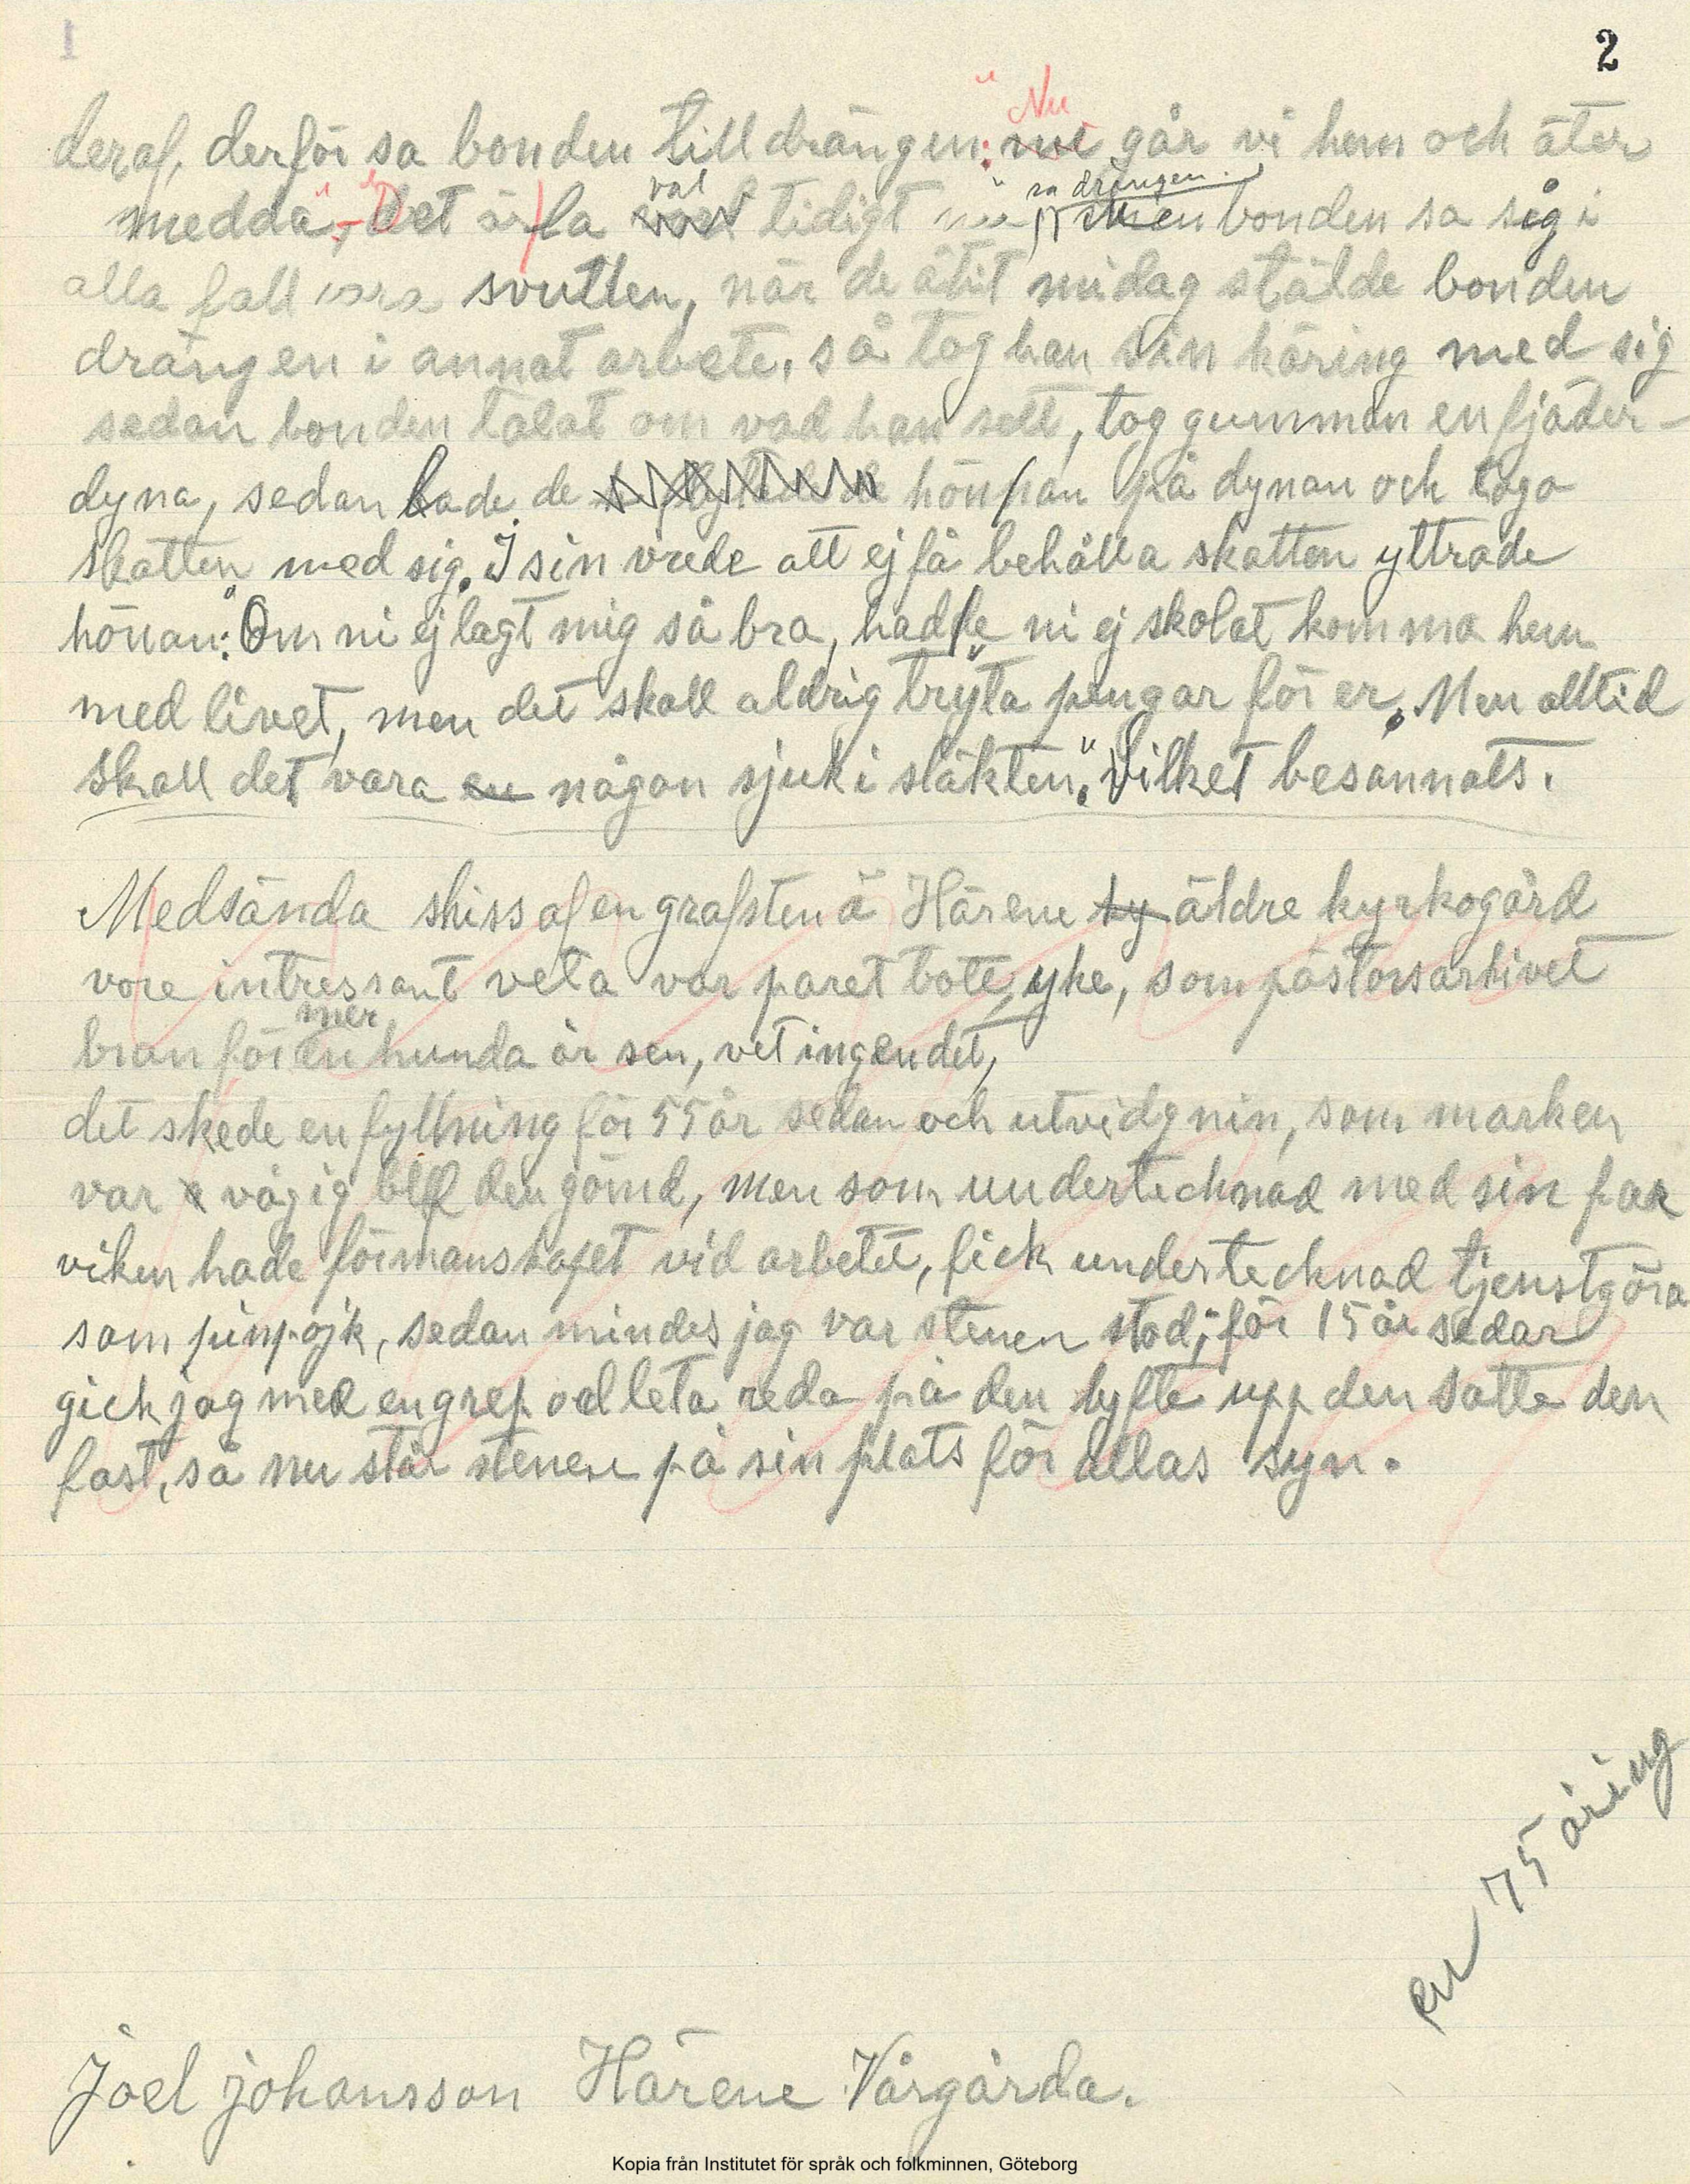 1
2
deraf, derför sa bonden till drängen: "Nu går vi hem och äter
medda", - "Det är la väl tidigt nu" sa drängen. men bonden sa sig i
alla fall vara svulten, när de ätit midag stälde bonden
drängen i annat arbete, så tog han sin käring med sig
sedan bonden talat om vad han sett, tog gumman en fjäder-
dyna, sedan lade de hönan på dynan och togo
skatten med sig. I sin vrede att ej få behålla skatten yttrade
hönan: "Om ni ej lagt mig så bra, hade ni ej skolat komma hem
med livet, men det skall aldrig tryta pengar för er. Men alltid
skall det vara en någon sjuk i släkten." Vilket besannats.
Medsända skiss af en grafsten å Härene ky äldre kyrkogård
vore intressant veta var paret bott, yke, som pastorsarkivet
bran för mer en hunda år sen, vet ingen det,
det skede en fyllning för 55 år sedan och utvidgnin, som marken
var vågig blef den gömd, men som undertecknad med sin far
viken hade förmanskapet vid arbetet, fick undertecknad tjenstgöra
som pinpojk, sedan mindes jag var stenen stod, för 15 år sedan
gick jag med en grep och leta reda på den lyfte upp den satte den
fast, så nu står stenen på sin plats för allas syn.
en 75 åring
Joel Johansson Härene Vårgårda.
Kopia från Institutet för språk och folkminnen, Göteborg